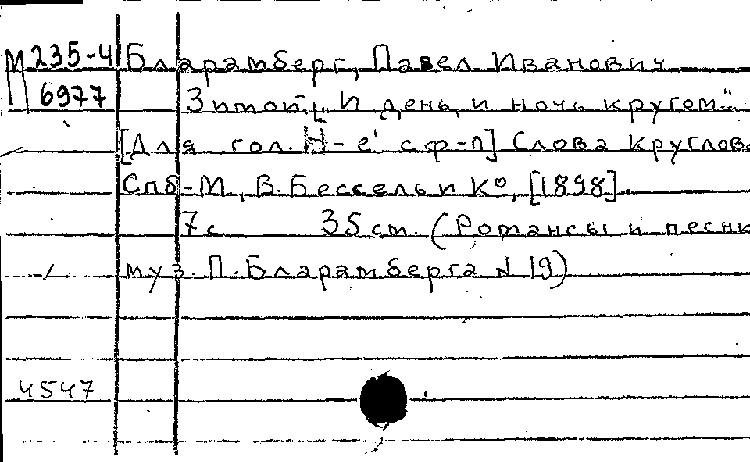 М 235-4 Бларамберг, Павел Иванович
П 6977 Зимой. „И день, и ночь кругом"
[Для гол. е' с ф-п] Слова Круглов
Спб-М., В. Бессель и К°, [1898].
7 с 35 см. (Романсы и песни
муз. П. Бларамберга N 19)
4547